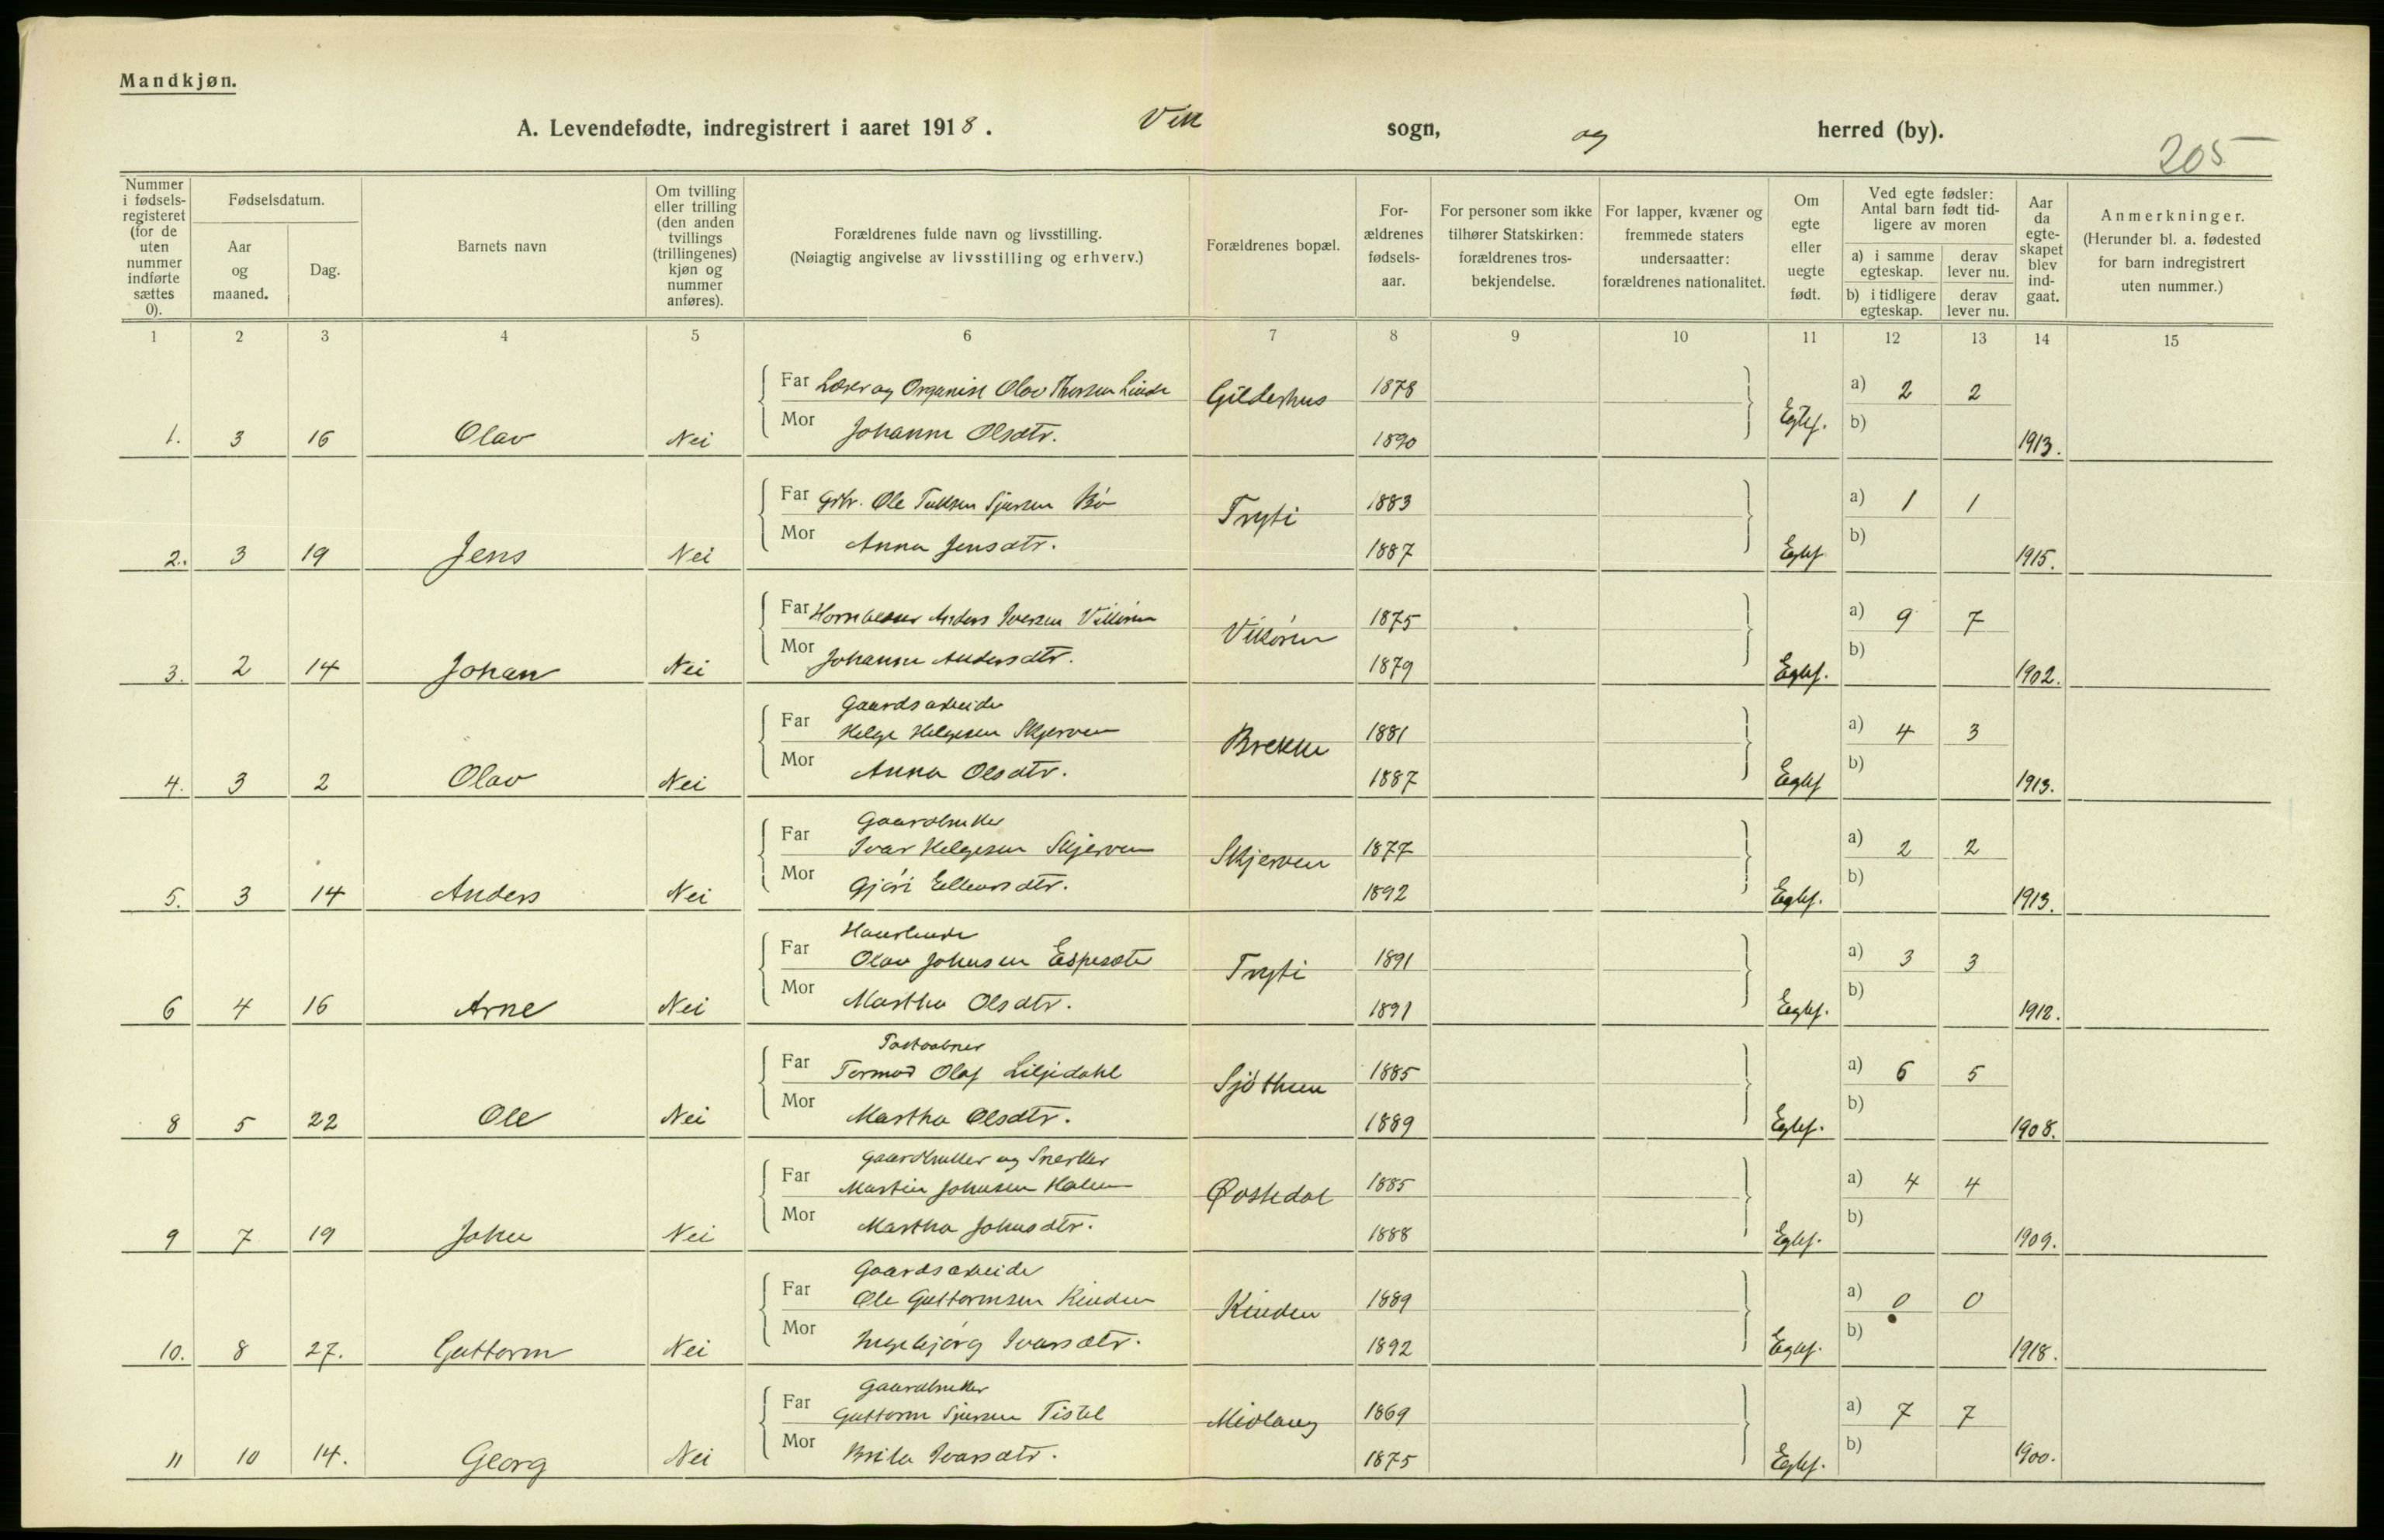 Mandkjøn.
A. Levendefødte, indregistrert i aaret 1918. Vik sogn, og herred (by).
205
Nummer i fødsels-registeret (for de uten nummer indførte sættes 0).
Fødselsdatum.
Aar og maaned.
Dag.
Barnets navn
Om tvilling eller trilling (den anden tvillings (trillingenes) kjøn og nummer anføres).
Forældrenes fulde navn og livsstilling.
(Nøiagtig angivelse av livsstilling og erhverv.)
Forældrenes bopæl.
For-ældrenes fødsels-aar.
For personer som ikke tilhører Statskirken: forældrenes tros-bekjendelse.
For lapper, kvæner og fremmede staters undersaatter: forældrenes nationalitet.
Om egte eller uegte født.
Ved egte fødsler: Antal barn født tid-ligere av moren
a) i samme egteskap.
derav lever nu.
b) i tidligere egteskap.
derav lever nu.
Aar da egte-skapet blev ind-gaat.
Anmerkninger.
(Herunder bl. a. fødested for barn indregistrert uten nummer.)
1 2 3 4 5 6 7 8 9 10 11 12 13 14 15
Far Lærer og Organist Olav Thorsen Linde Gilderhus 1878 a) 2 2
1. 3 16 Olav Nei Mor Johanne Olsdtr. 1890 Egtef. b) 1913.
Far Grbr. Ole Sjursen Bø Tryti 1883 a) 1 1
2. 3 19 Jens Nei Mor Anna Jensdtr. 1887 Egtef. b) 1915.
Far Anders Iversen Vikøren Vikøren 1875 a) 9 7
3. 2 14 Johan Nei Mor Johanne Andersdtr. 1879 Egtef. b) 1902.
Gaardsarbeider
Far Helge Helgesen Skjerven Brekke 1881 a) 4 3
4. 3 2 Olav Nei Mor Anna Olsdtr. 1887 Egtef b) 1913.
Gaardbruker
Far Ivar Helgesen Skjerven Skjerven 1877 a) 2 2
5. 3 14 Anders Nei Mor Gjøri Ellensdtr. 1892 Egtef. b) 1913.
Far Olav Johnsen Espesæter Tryti 1891 a) 3 3
6 4 16 Arne Nei Mor Martha Olsdtr. 1891 Egtef. b) 1912.
Postaabner
Far Tormod Olaf Liljedahl Sjøthun 1885 a) 6 5
8 5 22 Ole Nei Mor Martha Olsdtr. 1889 Egtef. b) 1908.
Gaardbruker og Snekker
Far Martin Johnsen Halen Øvstedal 1885 a) 4 4
9 7 19 John Nei Mor Martha Johnsdtr. 1888 Egtef. b) 1909.
Gaardsarbeider
Far Ole Guttormsen Kinden Kinden 1889 a) 0 0
10. 8 27. Guttorm Nei Mor Ingebjørg Ivarsdtr. 1892 Egtef. b) 1918.
Gaardbruker
Far Guttorm Sjursen Tistel Midlang 1869 a) 7 7
11 10 14. Georg Nei Mor Brita Ivarsdtr. 1875 Egtef. b) 1900.